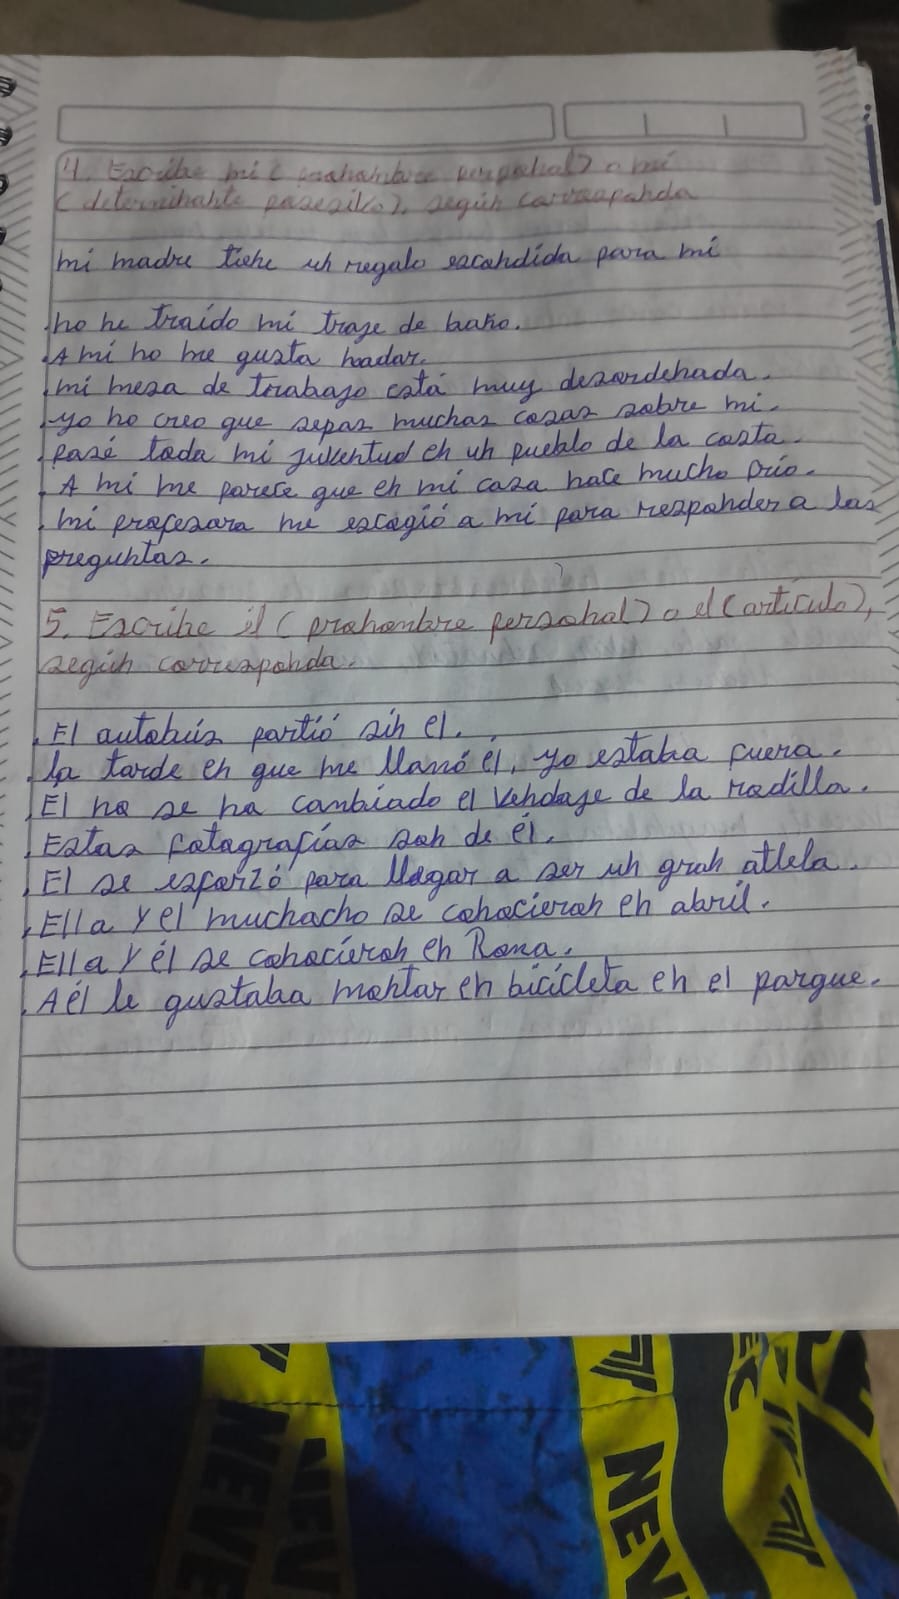 4. Escribe mí (pronombre personal) o mi
(determinante posesivo), según corresponda
mi madre tiene un regalo escondida para mí
.no he traído mi traje de baño.
.A mí no me gusta nadar.
.mi mesa de trabajo está muy desordenada.
.yo no creo que sepas muchas cosas sobre mi.
.Pasé toda mi juventud en un pueblo de la costa.
.A mi me parece que en mi casa hace mucho frío.
.mi profesora me escogió a mí para responder a las
preguntas.
5. Escribe él (pronombre personal) o el (artículo),
según corresponda.
.El autobús partió sin el.
.la tarde en que me llamó él, yo estaba fuera.
.El no se ha cambiado el vendaje de la rodilla.
.Estas fotografías son de él.
.El se esforzó para llegar a ser un gran atleta.
.Ella y el muchacho se conocieron en abril.
.Ella y él se conocieron en Roma.
.A él le gustaba montar en bicicleta en el parque.
NEVE
NEV
NEV